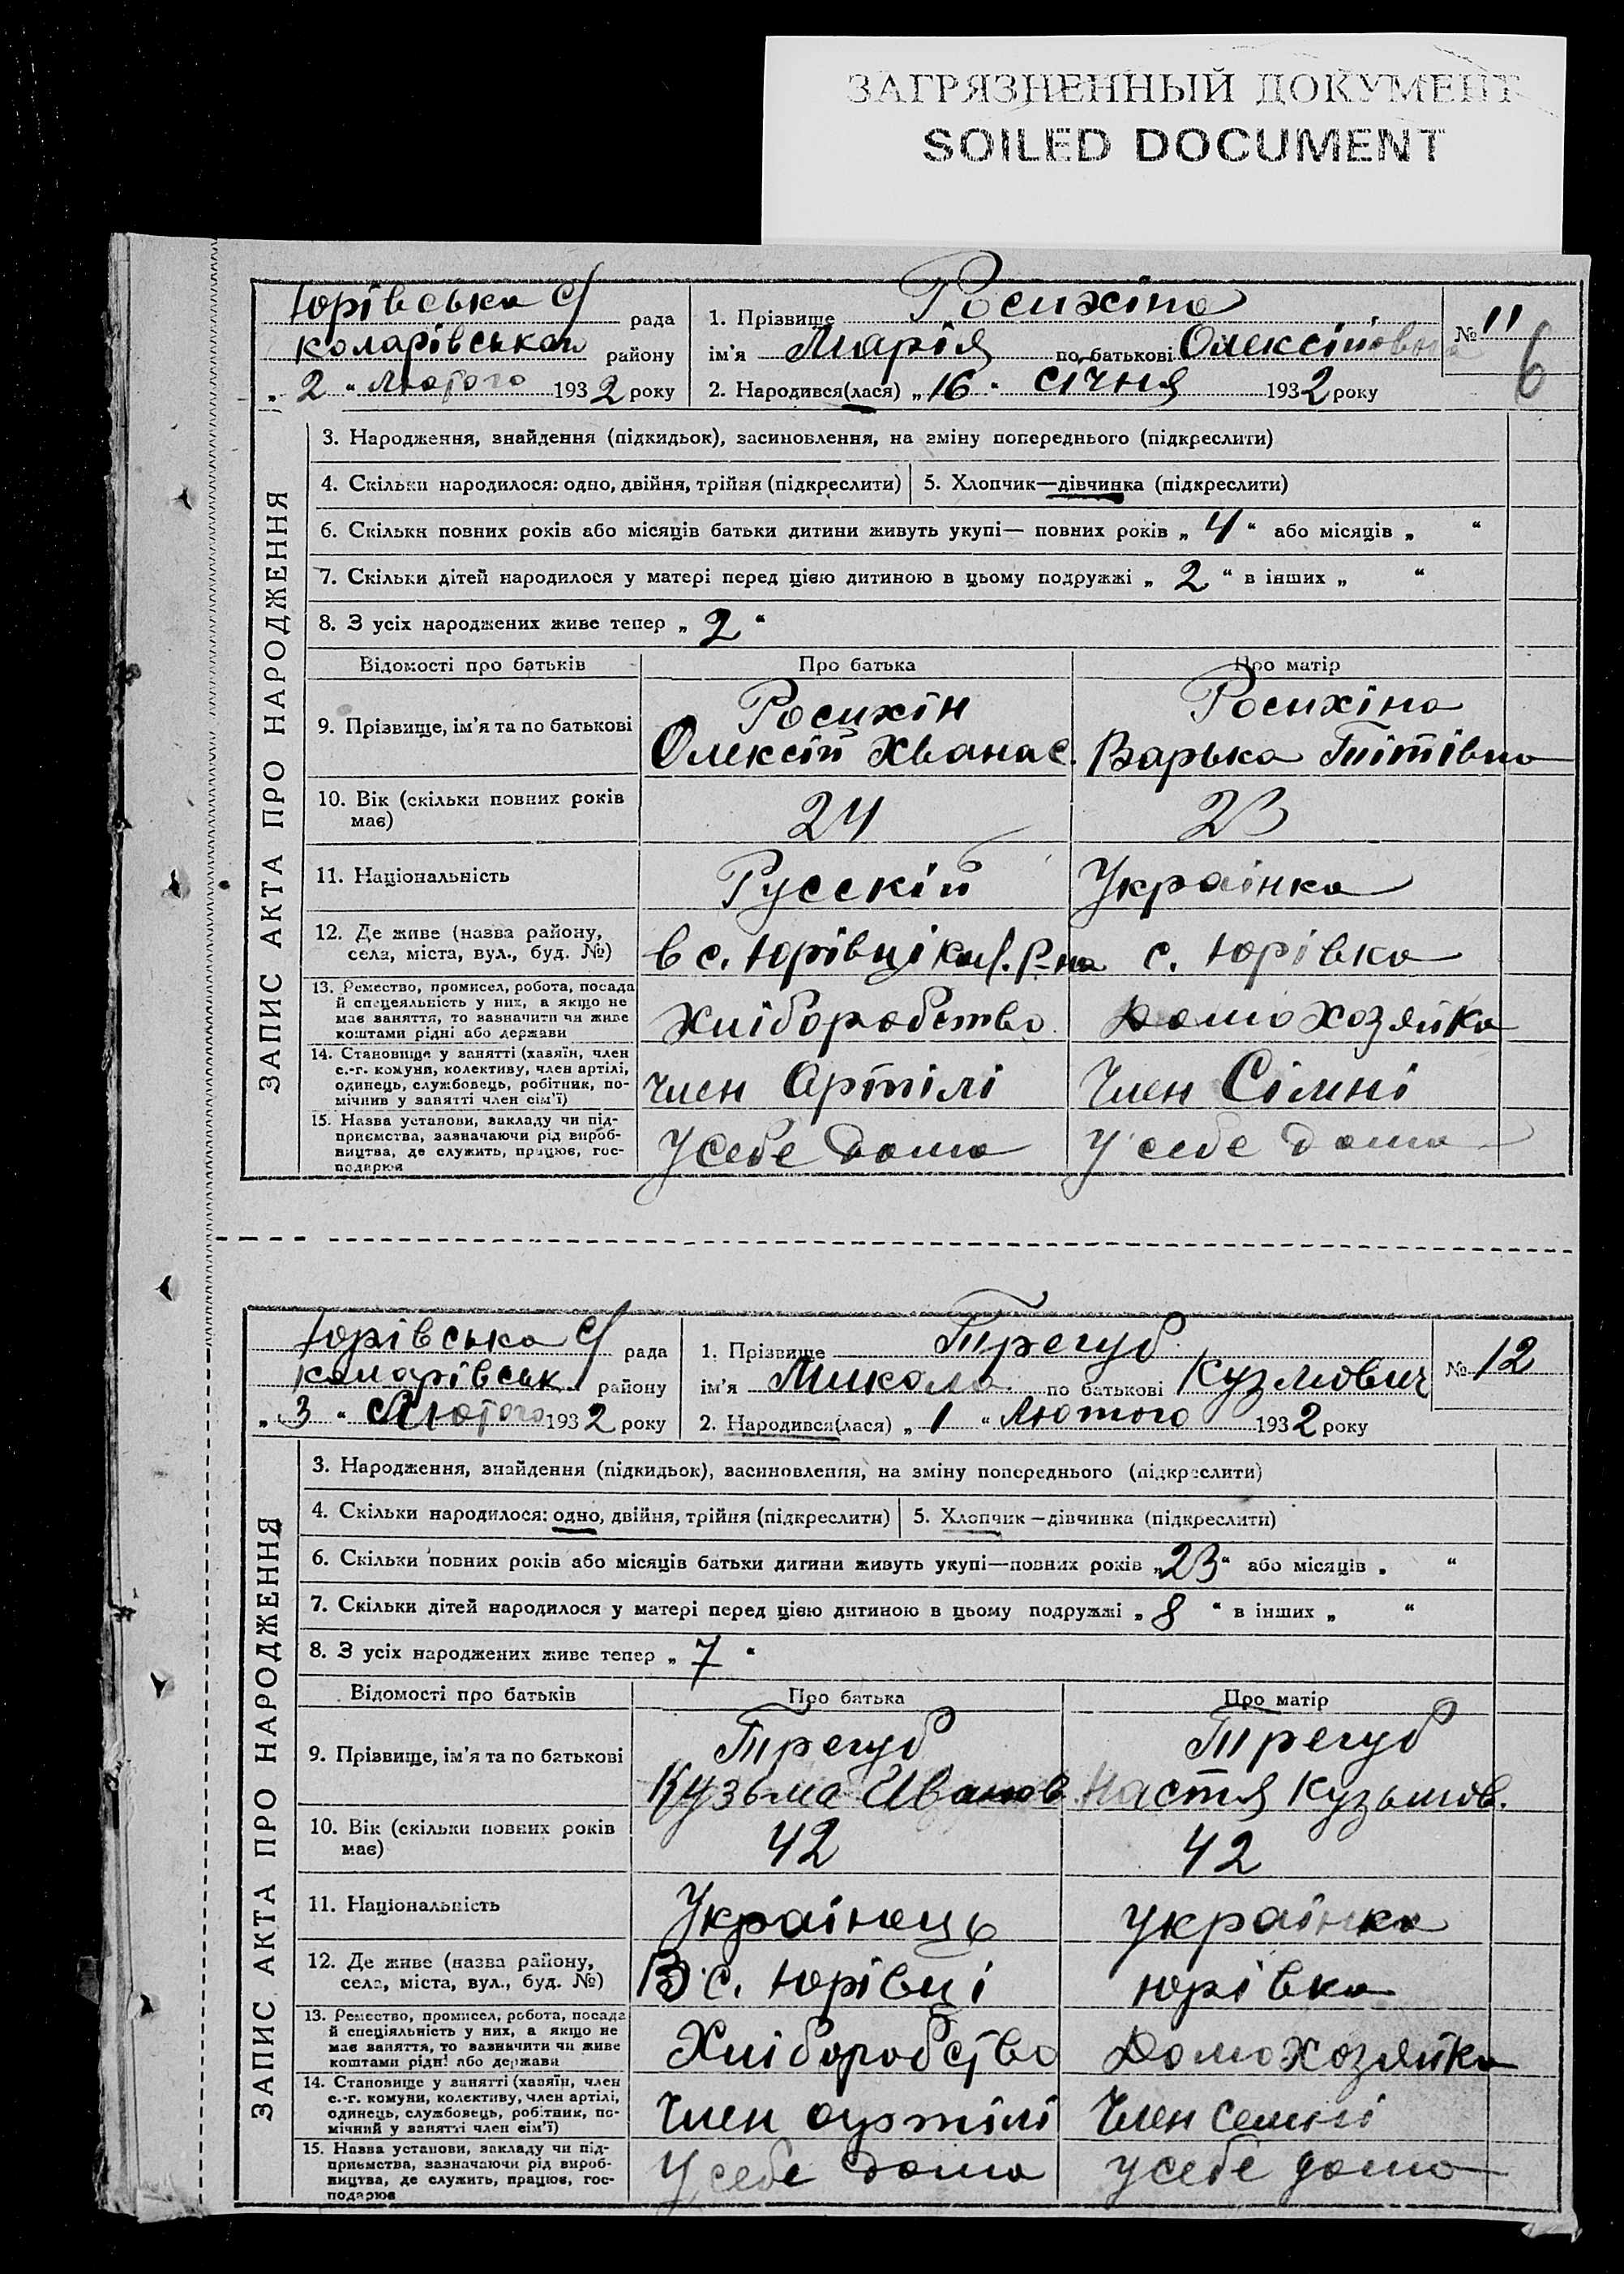 ЗАГРЯЗНЕННЫЙ ДОКУМЕНТ
SOILED DOCUMENT
Юрівська с/ рада
коларівськаго району
„ 2 “ Лютого 1932 року
1. Прізвище Росихіна
ім'я Марія по батькові Олексіївна
2. Народився(лася) „ 16 “ січня 1932 року
№ 11
6
ЗАПИС АКТА ПРО НАРОДЖЕННЯ
3. Народження, знайдення (підкидьок), засиновлення, на зміну попереднього (підкреслити)
4. Скільки народилося: одно, двійня, трійня (підкреслити) 5. Хлопчик—дівчинка (підкреслити)
6. Скільки повних років або місяців батьки дитини живуть укупі— повних років „ 4 “ або місяців „ “
7. Скільки дітей народилося у матері перед цією дитиною в цьому подружжі „ 2 “ в інших „ “
8. З усіх народжених живе тепер „ 2 “
Відомості про батьків Про батька Про матір
9. Прізвище, ім'я та по батькові
Росихін
Олексій Хванас.
Росихіна
Варька Тітівна
10. Вік (скільки повних років
має)
24 23
11. Національність Русскій Украінка
12. Де живе (назва району,
села, міста, вул., буд. №)
в с. Юрівці Кол. Р-на с. Юрівка
13. Ремество, промисел, робота, посада
й спецеяльність у них, а якщо не
має заняття, то зазначити чи живе
коштами рідні або держави
Хліборобство Домохозяйка
14. Становище у занятті (хазяїн, член
с.-г. комуни, колективу, член артілі,
одинець, службовець, робітник, по-
мічник у занятті член сім'ї)
Член Артілі Член Сімні
15. Назва установи, закладу чи під-
приємства, зазначаючи рід вироб-
ництва, де служить, працює, гос-
подарює
У себе дома У себе дома
Юрівська с/ рада
коларівськ. району
„ 3 “ Лютого 1932 року
1. Прізвище Трегуб
ім'я Микола по батькові Кузмович
2. Народився(лася) „ 1 “ Лютого 1932 року
№ 12
ЗАПИС АКТА ПРО НАРОДЖЕННЯ
3. Народження, знайдення (підкидьок), засиновлення, на зміну попереднього (підкреслити)
4. Скільки народилося: одно, двійня, трійня (підкреслити) 5. Хлопчик—дівчинка (підкреслити)
6. Скільки повних років або місяців батьки дитини живуть укупі—повних років „ 23 “ або місяців „ “
7. Скільки дітей народилося у матері перед цією дитиною в цьому подружжі „ 8 “ в інших „ “
8. З усіх народжених живе тепер „ 7 “
Відомості про батьків Про батька Про матір
9. Прізвище, ім'я та по батькові
Трегуб
Кузьма Иванов.
Трегуб
Настя Кузьмов.
10. Вік (скільки повних років
має)
42 42
11. Національність Украінець украінка
12. Де живе (назва району,
села, міста, вул., буд. №)
В с. Юрівці Юрівка
13. Ремество, промисел, робота, посада
й спеціяльність у них, а якщо не
має заняття, то зазначити чи живе
коштами рідні або держави
Хліборобство Домохозяйка
14. Становище у занятті (хазяїн, член
с.-г. комуни, колективу, член артілі,
одинець, службовець, робітник, по-
мічний у занятті член сім'ї)
Член артілі Член семні
15. Назва установи, закладу чи під-
приємства, зазначаючи рід вироб-
ництва, де служить, працює, гос-
подарює
У себе дома у себе дома